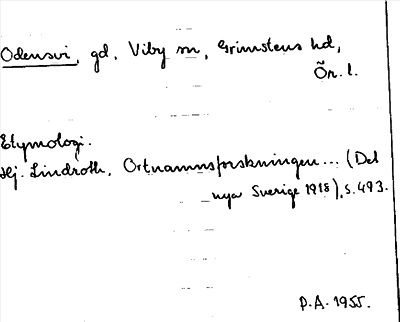 Odensvi, gd, Viby sn, Grimstens hd,
Ör. l.
Etymologi.
Hj. Lindroth, Ortnamnsforskningen... (Det
nya Sverige 1918), s. 493.
P.A. 1955.